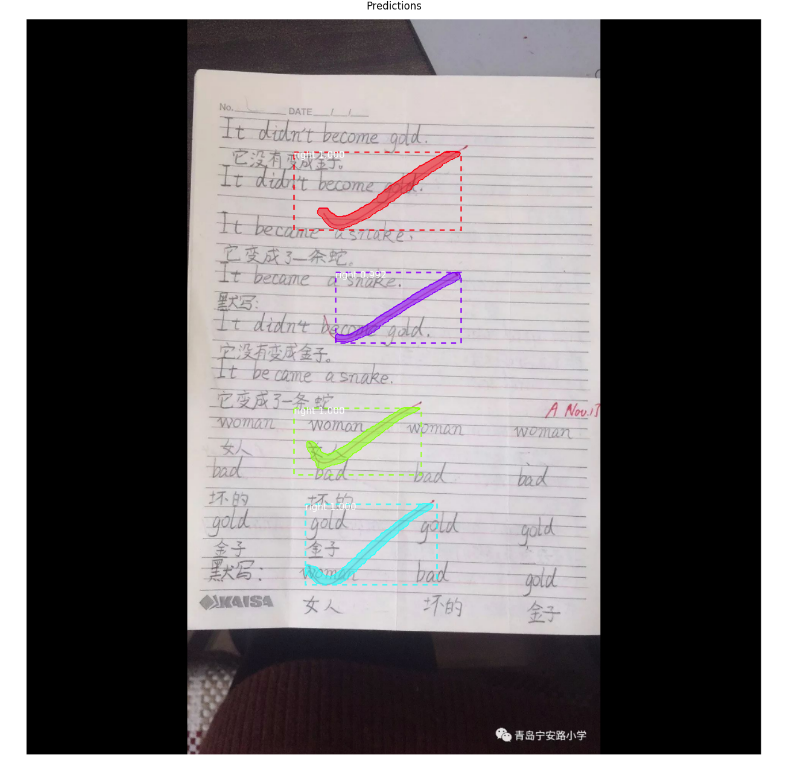 Predictions
No. DATE / /
It didn't become gold.
它没有变成金子。
right 1.000
It didn't become gold.
It became a snake.
它变成了一条蛇。
It became a snake.
right
默写:
It didn't become gold.
它没有变成金子。
It became a snake.
它变成了一条蛇
right 1.000
A Nov.1
woman woman woman woman
女人 女人
bad bad bad bad
坏的 坏的
right 1.000
gold gold gold gold
金子 金子
默写: woman bad gold
KAISA 女人 坏的 金子
青岛宁安路小学